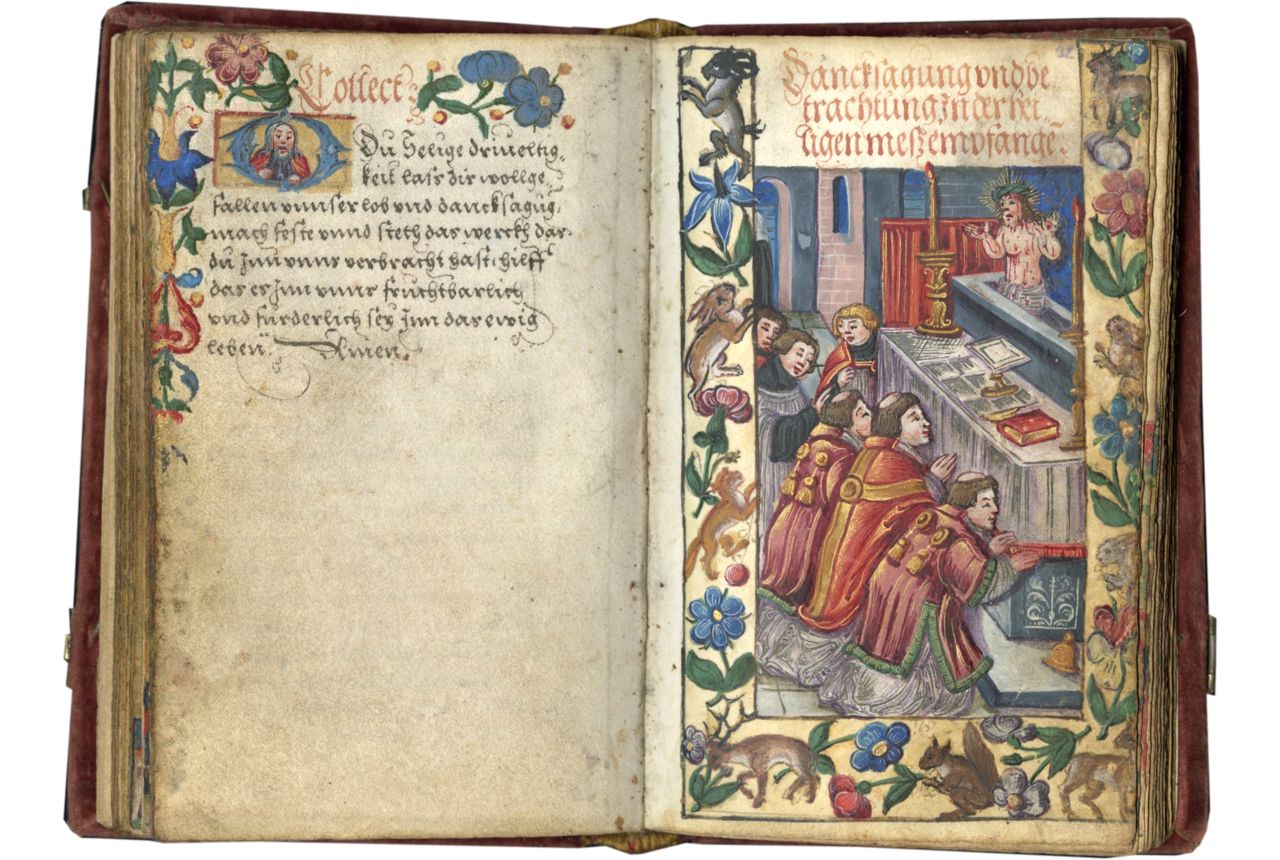 Collect
Du Heilige driueltig-
keit lass dir wollge-
fallen vnnser lob vnd dancksagūg,
mach feste vnnd steth das werckh das
du Inn vnns verbracht hast, hilff
das es Inn vnns fruchtbarlich
vnd fürderlich sey Inn das ewig
leben. Amen.
Dancksagung vnd be
trachtung In der hei-
ligen mess empfange.